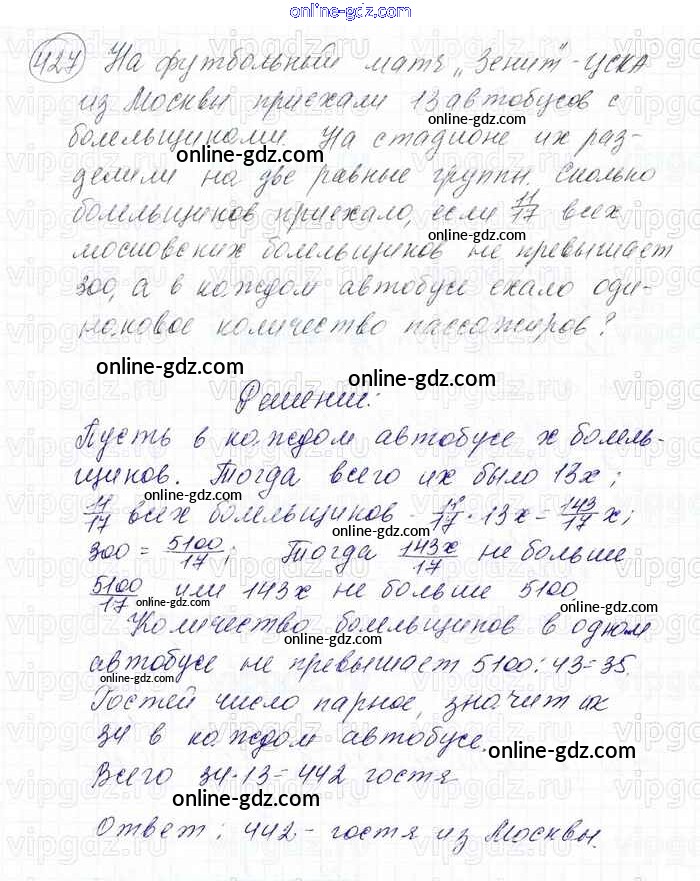 online-gdz.com
427 На футбольный матч „Зенит" - ЦСКА
из Москвы приехали 13 автобусов с
болельщиками. На стадионе их раз-
online-gdz.com
online-gdz.com
делили на две равные группы. Сколько
болельщиков приехало, если 11/17 всех
online-gdz.com
online-gdz.com
московских болельщиков не превышает
300, а в каждом автобусе ехало оди-
наковое количество пассажиров?
online-gdz.com
online-gdz.com
Решение:
Пусть в каждом автобусе x болель-
щиков. Тогда всего их было 13x;
online-gdz.com
11/17 всех болельщиков - 11/17 · 13x = 143/17 x;
online-gdz.com
300 = 5100/17; Тогда 143x/17 не больше
5100/17 или 143x не больше 5100
online-gdz.com
online-gdz.com
Количество болельщиков в одном
online-gdz.com
автобусе не превышает 5100:43=35.
online-gdz.com
Гостей число парное, значит их
34 в каждом автобусе.
online-gdz.com
Всего 34·13=442 гостя
online-gdz.com
Ответ: 442 - гостя из Москвы.
online-gdz.com